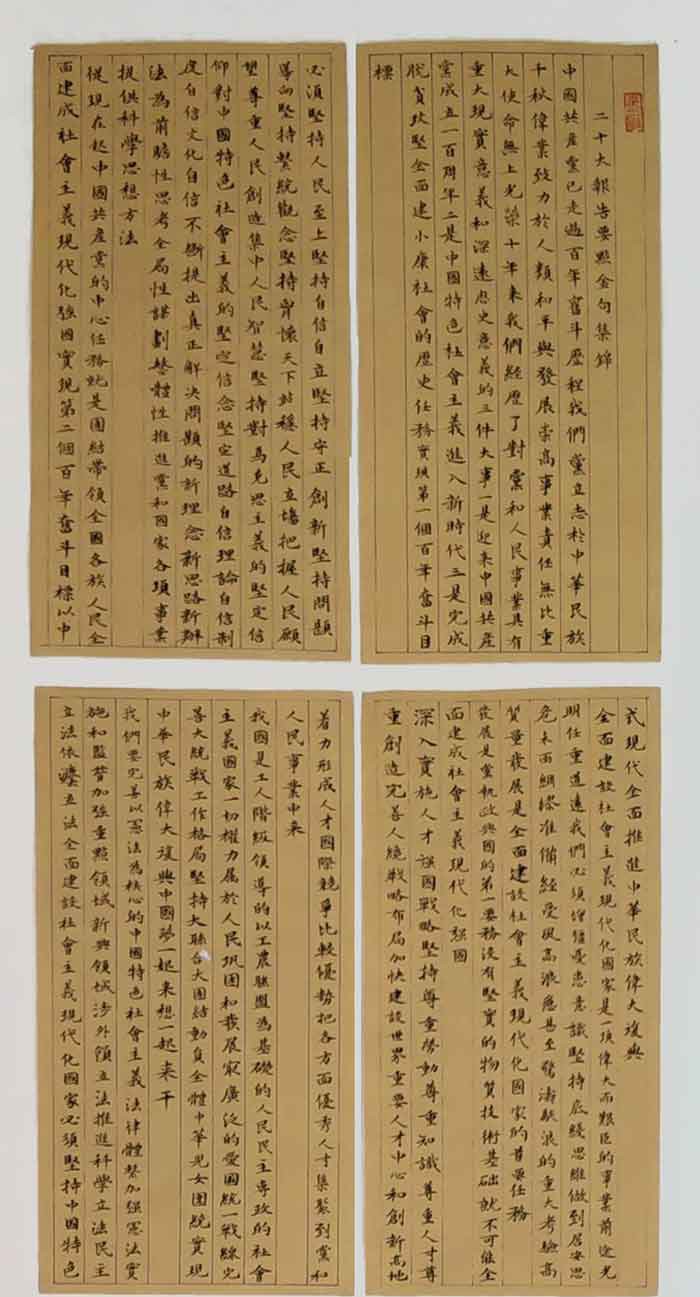 二十大報告要點金句集錦
中國共産黨已走過百年奮斗歷程我們黨立志於中華民族
千秋偉業致力於人類和平與發展崇高事業責任無比重
大使命無上光榮十年來我們經歷了對黨和人民事業具有
重大現實意義和深遠歷史意義的三件大事一是迎來中國共産
黨成立一百周年二是中國特色社會主義進入新時代三是完成
脫貧攻堅全面建小康社會的歷史任務實現第一個百年奮斗目
標
必須堅持人民至上堅持自信自立堅持守正創新堅持問題
導向堅持繫統觀念堅持胷懷天下站穩人民立場把握人民願
望尊重人民創造集中人民智慧堅持對馬克思主義的堅定信
仰對中國特色社會主義的堅定信念堅定道路自信理論自信制
度自信文化自信不斷提出真正解决問題的新理念新思路新辦
法為前瞻性思考全局性謀劃整體性推進黨和國家各項事業
提供科學思想方法
從現在起中國共産黨的中心任務就是團結帶領全國各族人民全
面建成社會主義現代化強國實現第二個百年奮斗目標以中
式現代全面推進中華民族偉大復興
全面建設社會主義現代化國家是一項偉大而艱巨的事業前途光
明任重道遠我們必須增強憂患意識堅持底綫思維做到居安思
危未雨綢繆准備經受風高浪急甚至驚濤駭浪的重大考驗高
質量發展是全面建設社會主義現代化國家的首要任務
發展是黨執政興國的第一要務沒有堅實的物質技術基础就不可能全
面建成社會主義現代化強國
深入實施人才強國戰略堅持尊重勞動尊重知識尊重人才尊
重創造完善人才戰略布局加快建設世界重要人才中心和創新高地
着力形成人才國際競爭比較優勢把各方面優秀人才集聚到黨和
人民事業中來
我國是工人階級領導的以工農聯盟為基礎的人民民主專政的社會
主義國家一切權力屬於人民巩固和發展寂廣泛的愛國統一戰線完
善大統戰工作格局堅持大聯合大團結動員全體中華兒女團統實現
中華民族偉大復興中國夢一起來想一起来干
我們要完善以憲法為核心的中國特色社會主義法律體繫加強憲法實
施和監督加強重點領域新興領域涉外領立法推進科學立法民主
立法依 立法全面建設社會主義現代化國家必須堅持中國特色